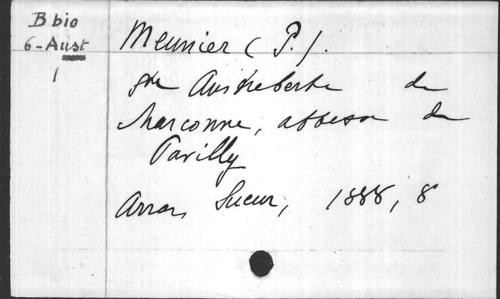 B bio
6-Aust
1
Meunier (P.).
Ste Austreberte de
Marconne, abbesse de
Pavilly
Arras, Sueur, 1888, 8